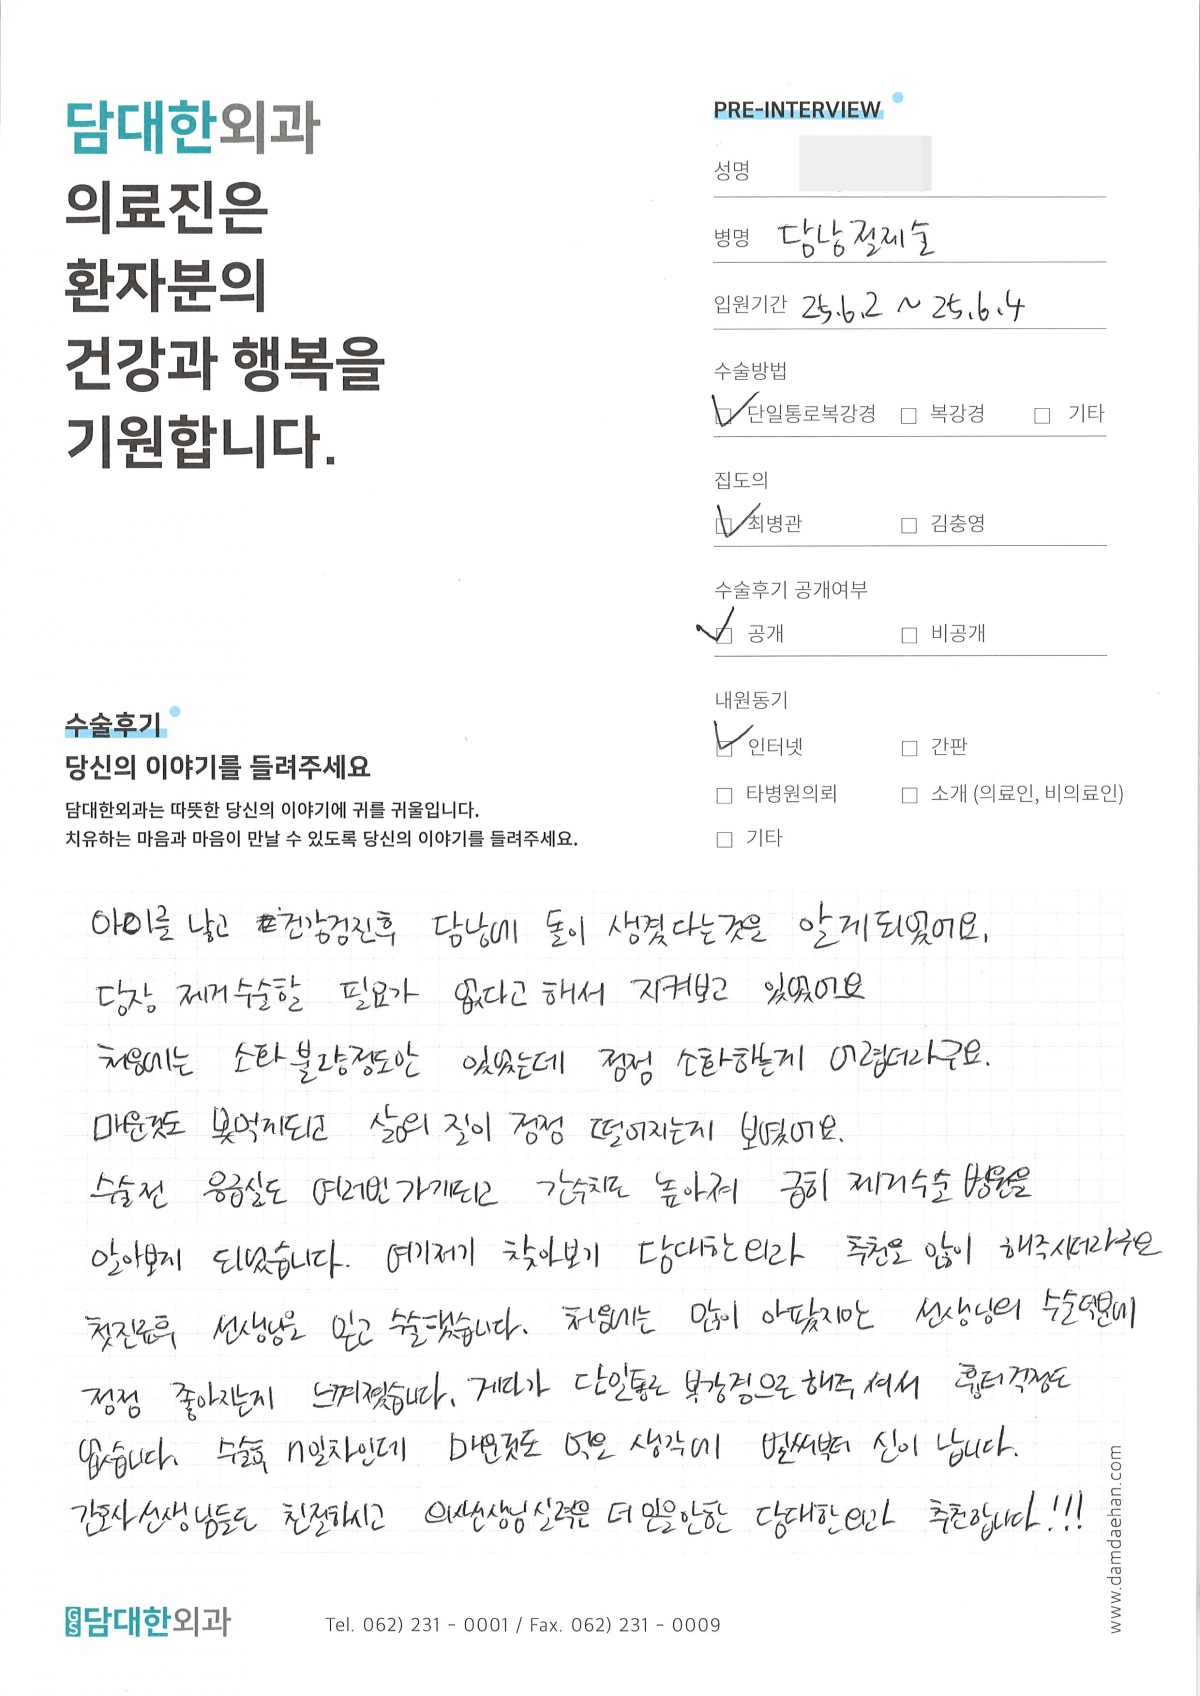 담대한외과
의료진은
환자분의
건강과 행복을
기원합니다.
PRE-INTERVIEW
성명
병명 담낭절제술
입원기간 25.6.2 ~ 25.6.4
수술방법
단일통로복강경 복강경 기타
집도의
최병관 김충영
수술후기 공개여부
공개 비공개
내원동기
인터넷 간판
타병원의뢰 소개 (의료인, 비의료인)
기타
수술후기
당신의 이야기를 들려주세요
담대한외과는 따뜻한 당신의 이야기에 귀를 귀울입니다.
치유하는 마음과 마음이 만날 수 있도록 당신의 이야기를 들려주세요.
아이를 낳고 건강검진후 담낭에 돌이 생겼다는것을 알게되었어요.
당장 제거수술할 필요가 없다고 해서 지켜보고 있었어요
처음에는 소화불량정도만 있었는데 점점 소화하는게 어렵더라구요.
매운것도 못먹게되고 삶의 질이 점점 떨어지는게 보였어요.
수술전 응급실도 여러번가게되고 간수치도 높아져 급히 제거수술 병원을
알아보게 되었습니다. 여기저기 찾아보기 담대한외과 추천도 많이 해주시더라구요
첫진료후 선생님을 믿고 수술했습니다. 처음에는 많이 아팠지만 선생님의 수술덕분에
점점 좋아지는게 느껴졌습니다. 게다가 단일통로 복강경으로해주셔서 흉터걱정도
없습니다. 수술후 n일차인데 매운것도 먹을 생각에 벌써부터 신이 납니다.
간호사선생님들도 친절하시고 의사선생님실력은 더 믿을만한 담대한외과 추천합니다!!!
www.damdaehan.com
GS 담대한외과
Tel. 062) 231 - 0001 / Fax. 062) 231 - 0009